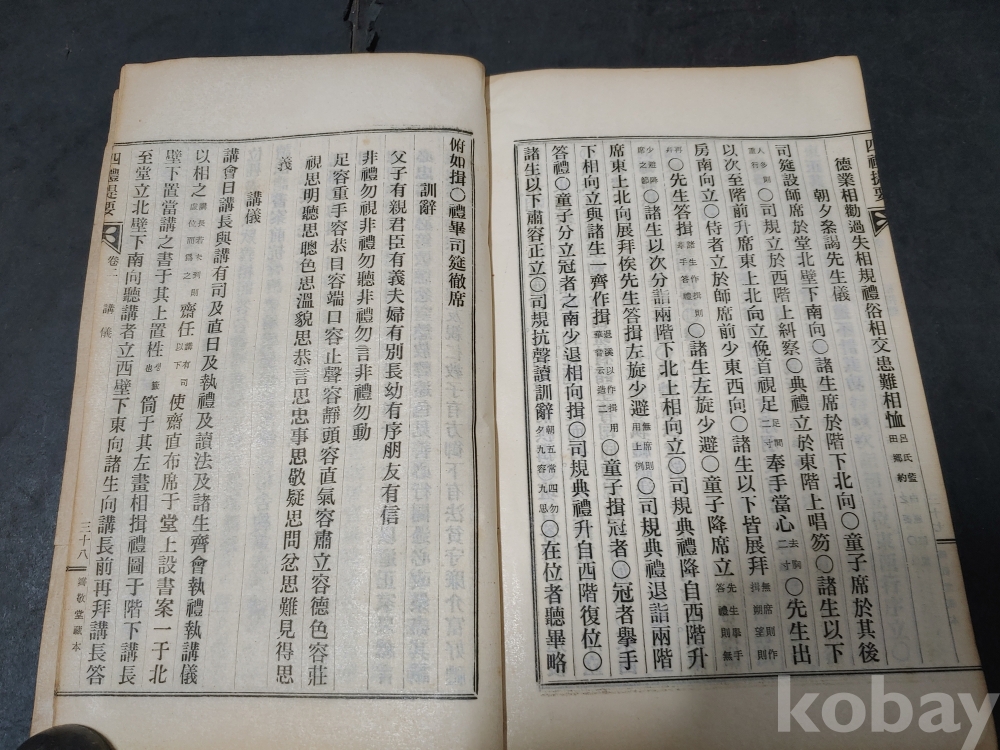 四禮提要
德業相勸過失相規禮俗相交患難相恤 呂氏藍田鄕約
朝夕叅謁先生儀
司筵設師席於堂北壁下南向〇諸生席於階下北向〇童子席於其後
〇司規立於西階上糾察〇典禮立於東階上唱笏〇諸生以下
以次至階前升席東上北向立俛首視足 足間二寸 奉手當心 去胸二寸 〇先生出
房南向立〇侍者立於師席前少東西向〇諸生以下皆展拜 無席則作揖朔望則
再 〇先生答揖 諸生作揖則奉手答禮 〇諸生左旋少避〇童子降席立 先生擧手答禮則無
少避之節 〇諸生以次分詣兩階下北上相向立〇司規典禮降自西階升
席東上北向展拜俟先生答揖左旋少避 無席則用上例 〇司規典禮退詣兩階
下相向立與諸生一齊作揖 〇童子揖冠者〇冠者擧手
答禮〇童子分立冠者之南少退相向揖〇司規典禮升自西階復位〇
諸生以下肅容正立〇司規抗聲讀訓辭 朝五常四勿夕九容九思 〇在位者聽畢略
俯如揖〇禮畢司筵徹席
訓辭
父子有親君臣有義夫婦有別長幼有序朋友有信
非禮勿視非禮勿聽非禮勿言非禮勿動
足容重手容恭目容端口容止聲容靜頭容直氣容肅立容德色容莊
視思明聽思聰色思溫貌思恭言思忠事思敬疑思問忿思難見得思
義
講儀
講會日講長與講有司及直日及執禮及讀法及諸生齊會執禮執講儀
以相之 講長若未到則虛位而爲之 齋任 講有司以下 使齋直布席于堂上設書案一于北
壁下置當講之書于其上置栍 생 籤 筒于其左畫相揖禮圖于階下講長
至堂立北壁下南向聽講者立西壁下東向諸生向講長前再拜講長答
四禮提要 卷二 講儀 三十八 篤敬堂藏本
kobay